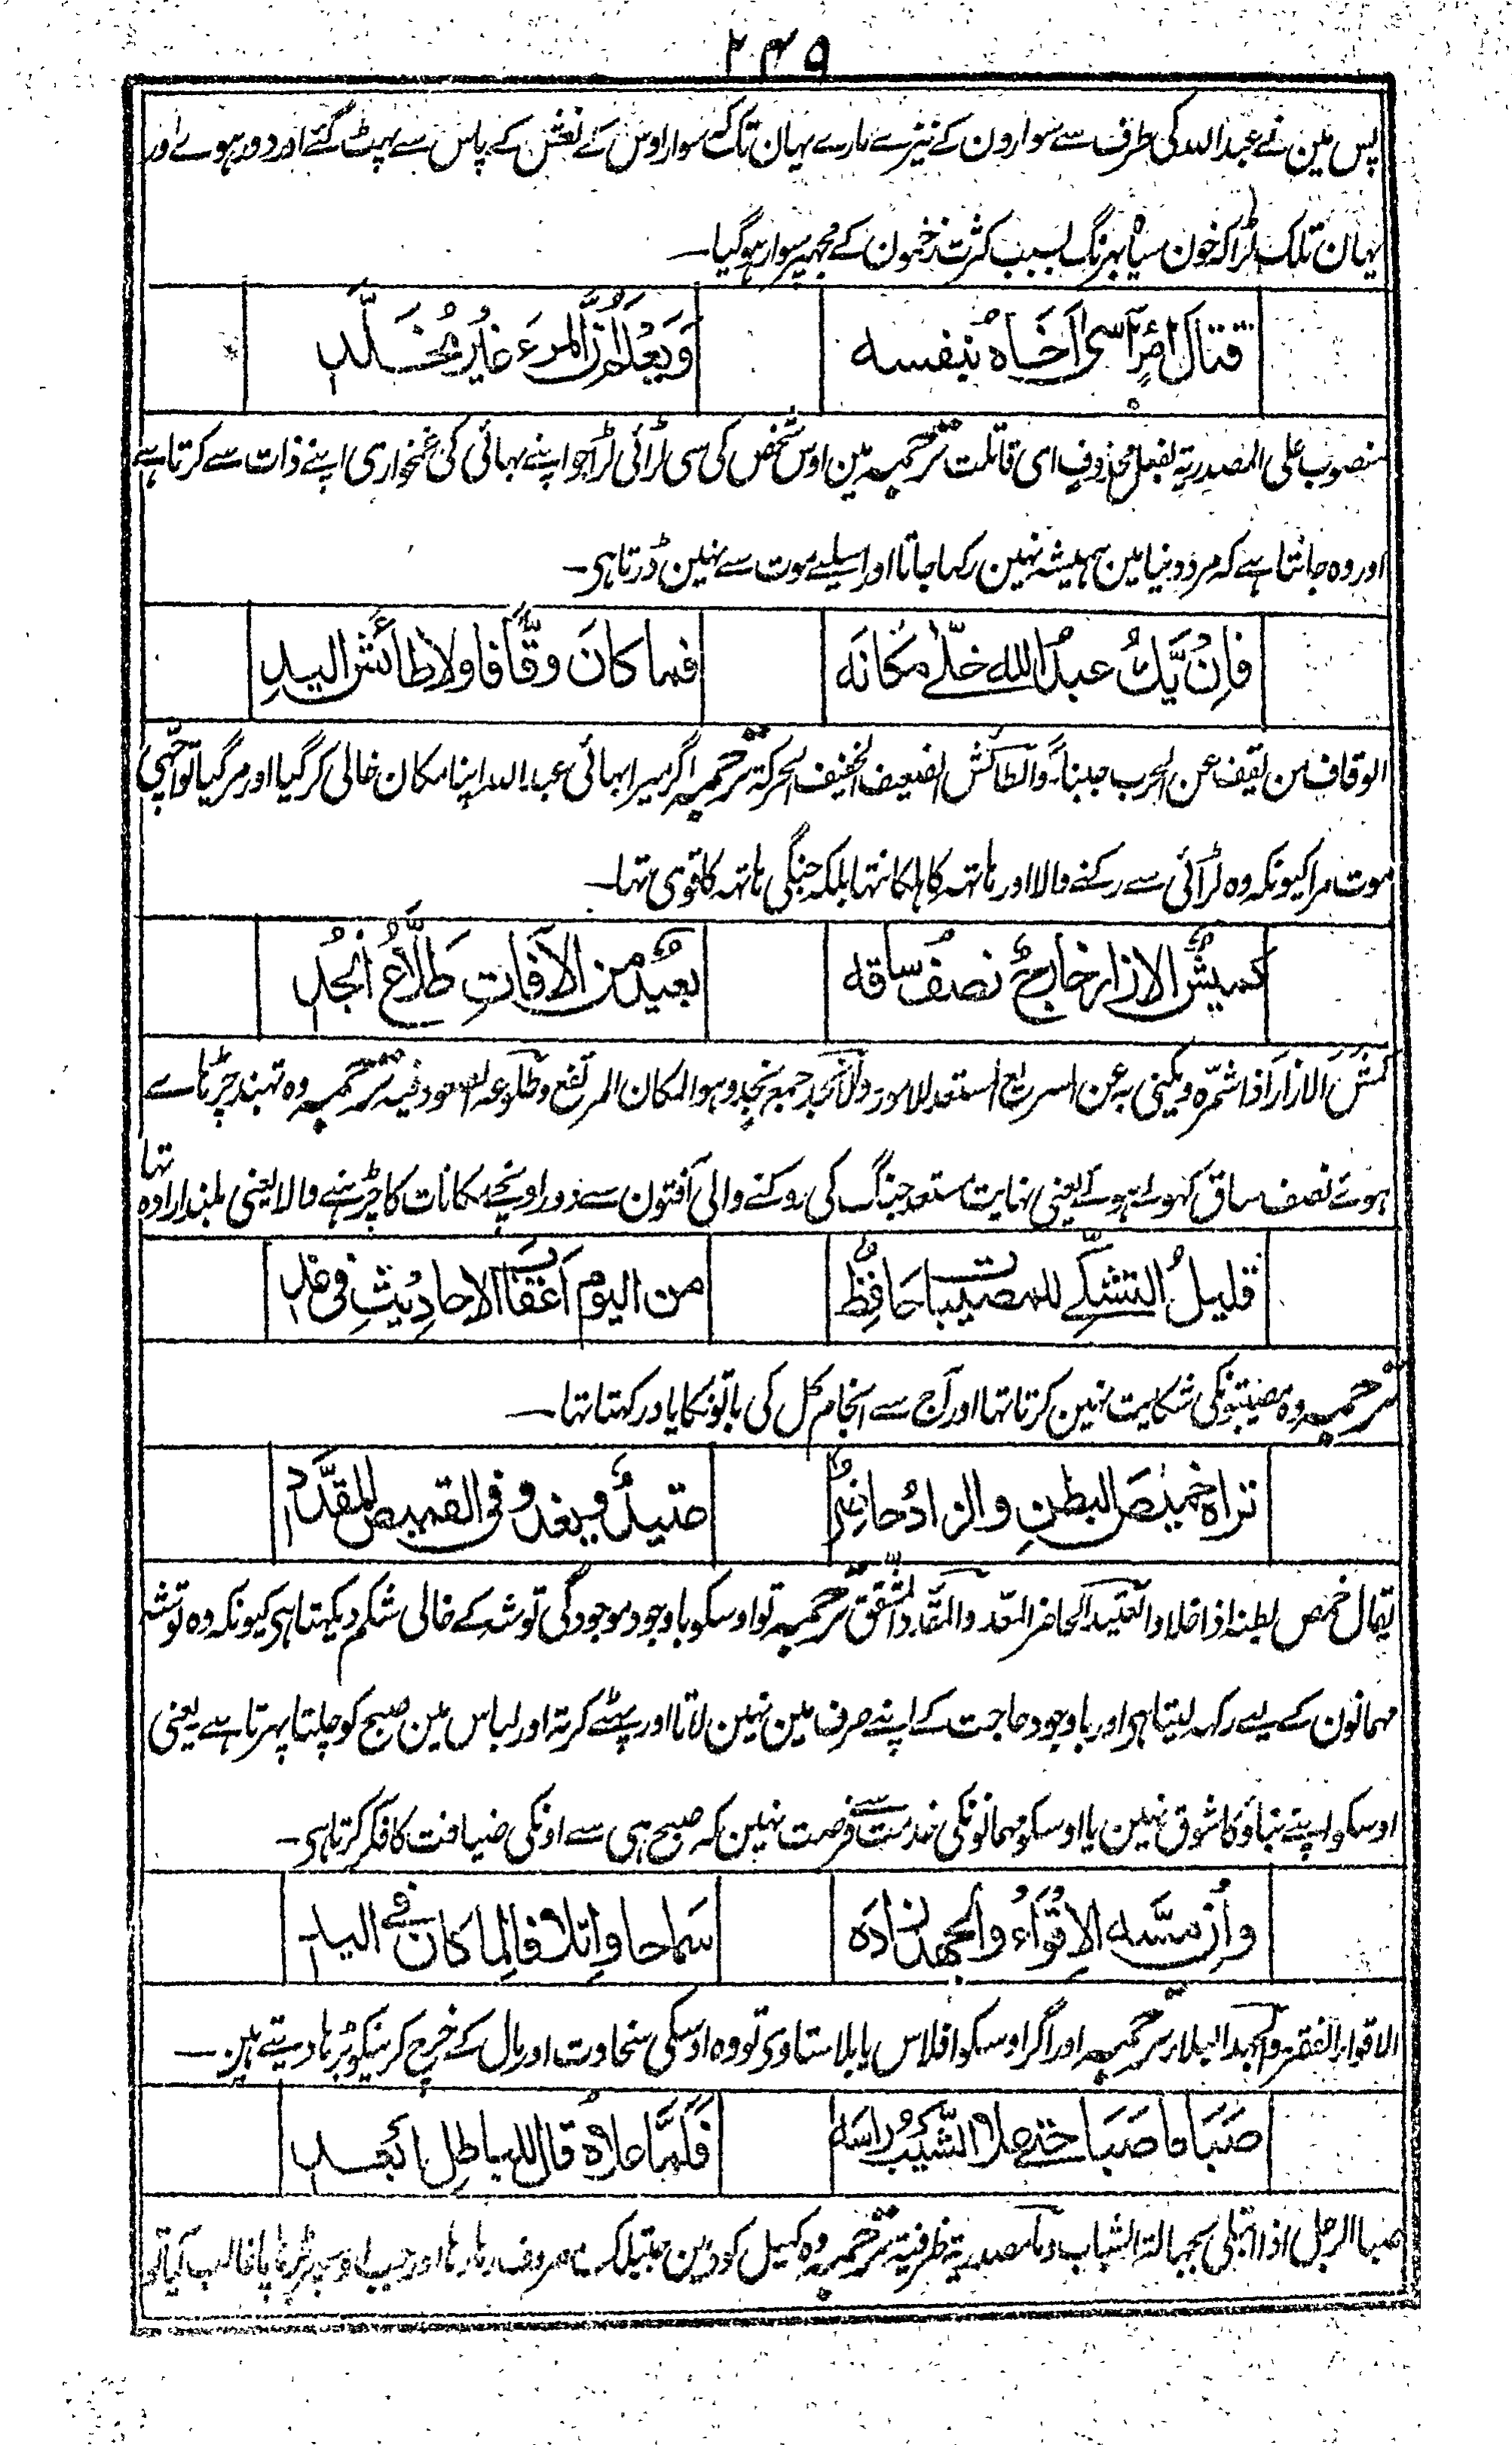 ۲۳۹
پس مین نے عبداللہ کی طرف سے سوارون کے نیزے مارے یہان تک کہ سوار اوس کے نعش کے پاس سے ہٹ گئے اور دور ہوے اور
یہان تلک لڑا کہ خون سیاہ رنگ بسبب کثرت زخمون کے مجہپر سوار ہوگیا۔
قتالَ امرِئٍ آسیٰ اَخَاہُ بنفسه وَیَعْلَمُ انَّ المرءَ غیرُ مُخَلَّدِ
منصوب علی المصدریۃ بفعل محذوف ای قاتلت ترجمہ مین اوس شخص کی سی لڑائی لڑا جو اپنے بہائی کی غمخواری اپنے ذات سے کرتا ہے
اور وہ جانتا ہے کہ مرد دنیا مین ہمیشہ نہین رکہا جاتا اور اسلیے موت سے نہین ڈرتا ہی۔
فاِنْ یَّكُ عبدُ اللہ خلّٰے مکانَه فما کانَ وقَّافا ولا طائشَ الیدِ
الوقاف من یقف عن الحرب جبناً۔ والطائش الضعیف الخفیف الحرکۃ ترجمہ اگر میرا بہائی عبداللہ اپنا مکان خالی کر گیا اور مر گیا تو اچہی
موت مرا کیونکہ وہ لڑائی سے رکنے والا اور ہاتہہ کا ہلکا نتہا بلکہ جنگی ہاتہہ کا قوی تہا۔
کمیشُ الازار خارجٌ نصفُ ساقه بعیدٌ من الآفاتِ طلَّاعُ اَنجُدِ
کمش الازار اذا شمّرہ ویکنی بہ عن السریع المستعد للامور والانجد جمع نجد وہو المکان المرتفع وطلوعہ الصعود فیہ ترجمہ وہ تہبند چڑہاے
ہوئے نصف ساق کہولے ہوئے یعنی نہایت مستعد جنگ کی روکنے والی آفتون سے دور اونچے مکانات کا چڑہنے والا یعنی بلند ارادہ تہا
قلیلُ التشکّے للمصیبات حَافِظٌ من الیوم اَعْقَابَ الاحادِیثِ فی غدِ
ترجمہ وہ مصیبتونکی شکایت نہین کرتا تہا اور آج سے انجام کل کی باتونکا یاد رکہتا تہا۔
تراہ خمیصَ البطنِ والزادُ حاضِرٌ عتیدٌ ویغدو فی القمیصِ المقدَّدِ
یقال خمص بطنہ اذا خلا والعتید الحاضر المعد والمقدد المشقق ترجمہ تو اوسکو باوجود موجودگی توشہ کے خالی شکم دیکہتا ہی کیونکہ وہ توشہ
مہمانون کے لیے رکہہ لیتا ہی اور باوجود حاجت کے اپنے صرف مین نہین لاتا اور پہٹے کرتہ اور لباس مین صبح کو چلتا پہرتا ہے یعنی
اوسکو اپنے بناؤ کا شوق نہین یا اوسکو مہمانونکی خدمت سے فرصت نہین کہ صبح ہی سے اونکی ضیافت کا فکر کرتا ہی۔
واِن مسَّه الاِقْوَاءُ والجهدُ زادَه سَماحا واِتلافا لِما کانَ فے الیدِ
الاقواء الفقر والجہد البلاء ترجمہ اور اگر اوسکو افلاس یا بلا ستاوی تو وہ اوسکی سخاوت اور مال کے خرچ کرنیکو بڑہا دیتے ہین۔
صَبَا ما صَبَا حتے علا الشَّیْبُ راسَه فَلَمَّا علاہُ قال للباطلِ ابْعَدِ
صبا الرجل اذا ابتلی بجہالۃ الشباب وما مصدریۃ ظرفیۃ ترجمہ وہ کہیل کود مین مصروف رہا رہا اور جب اوسپر بڑہاپا غالب آیا تو